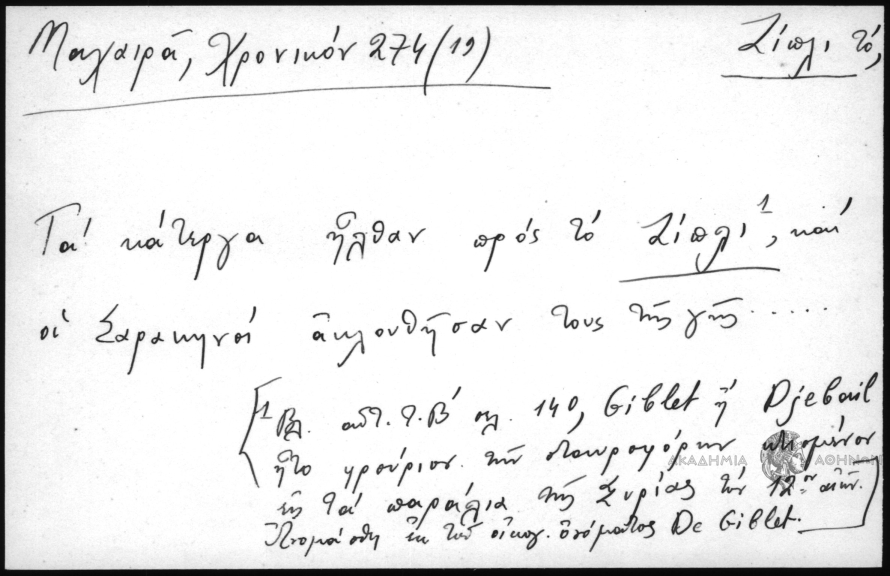 Μαχαιρᾶ, Χρονικόν 274 (19)
Ζίπλι τό,
Τά κάτεργα ἦλθαν πρός τό Ζίπλι¹, καί
οἱ Σαρακηνοί ἀκλουθῆσαν τους τῆς γῆς .....
[1 Βλ. αὐτ. τ. Β΄ σελ. 140, Giblet ἤ Djebail
ἦτο φρούριον τῶν σταυροφόρων κτισμένον
εἰς τά παράλια τῆς Συρίας τόν 12ον αἰών.
Ὠνομάσθη ἐκ τοῦ οἰκογ. ὀνόματος De Giblet.]
ΑΚΑΔΗΜΙΑ ΑΘΗΝΩΝ